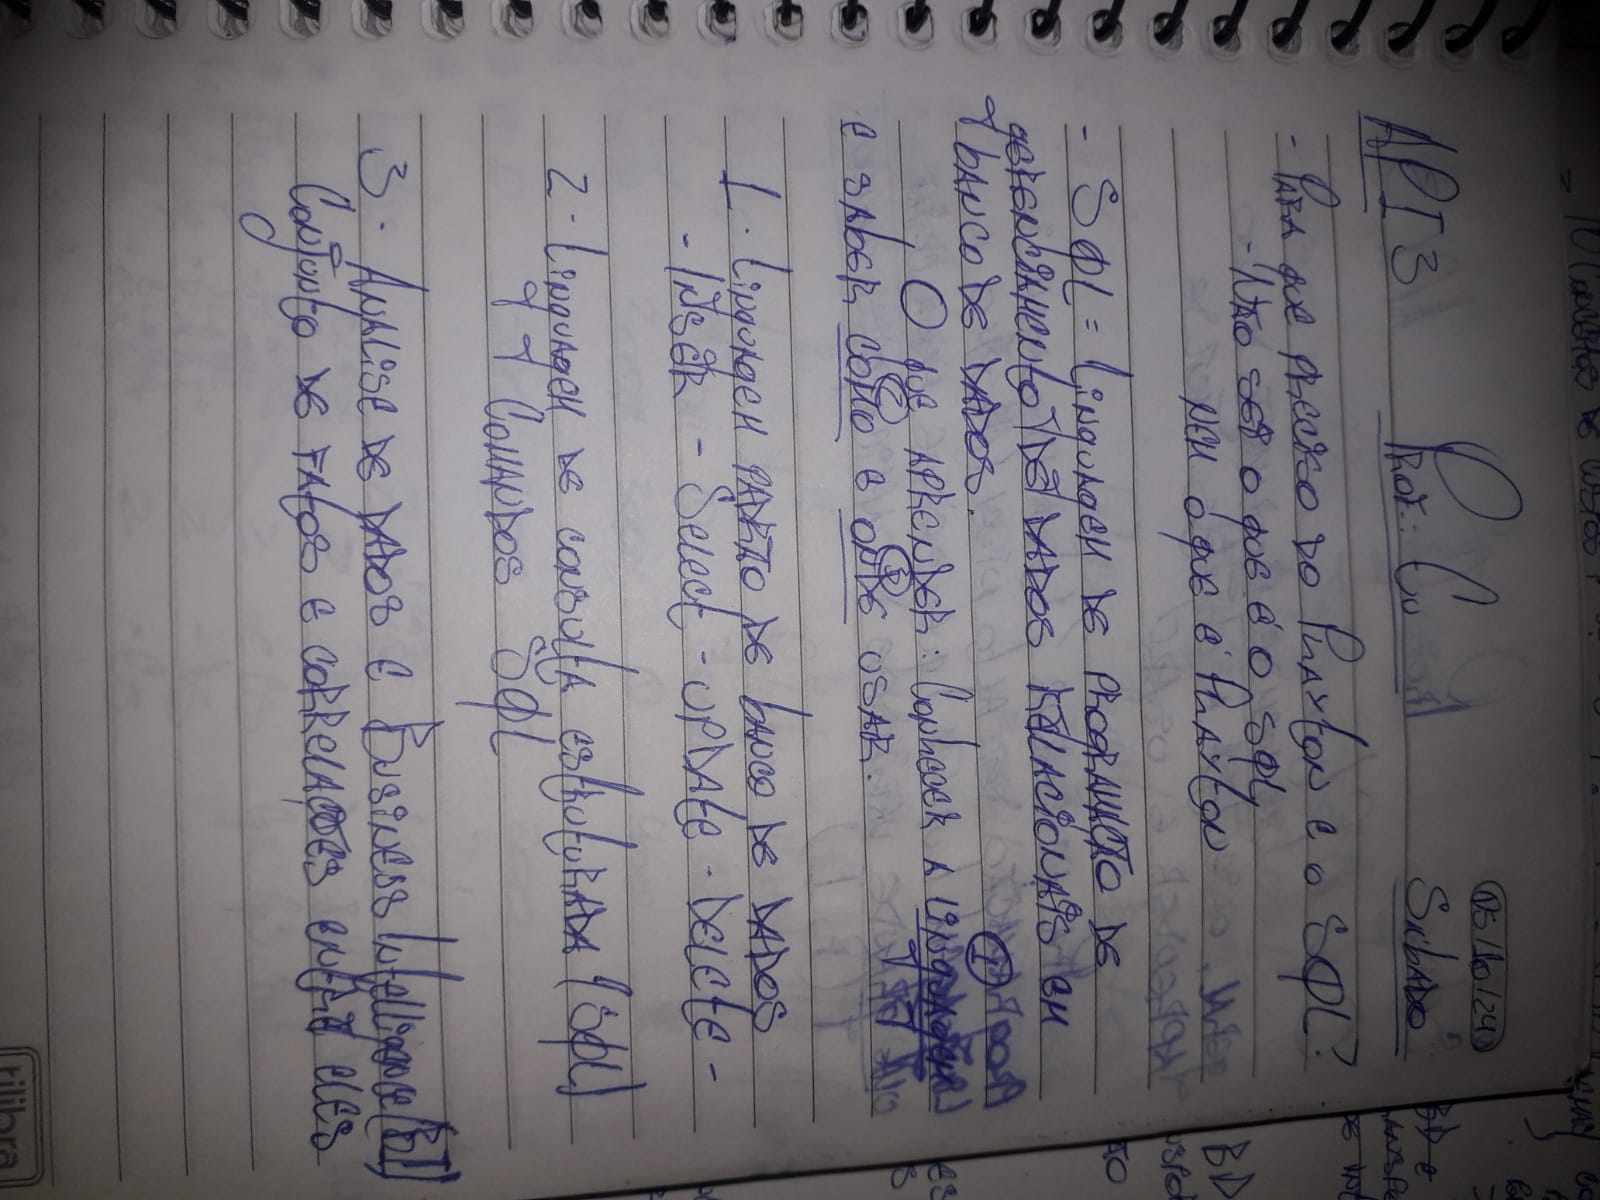 = 10 Conceitos de custos
05/10/24
API 3 Prof.: Eu Sábado
- Para que preciso do Phayton e o SQL?
- Não sei o que é o SQL
nem o que é Phayton
- SQL = Linguagem de programação de
gerenciamento de dados relacionais em
banco de dados.
O que aprender: Conhecer a linguagem
e saber como e onde usar.
1. Linguagem padrão de banco de dados
- Inser - Select - Update - Delete -
2 - Linguagem de consulta estruturada (SQL)
Comandos SQL
3 - Análise de dados e Business Intelligence (BI)
Conjunto de fatos e correlações entre eles
tilibra